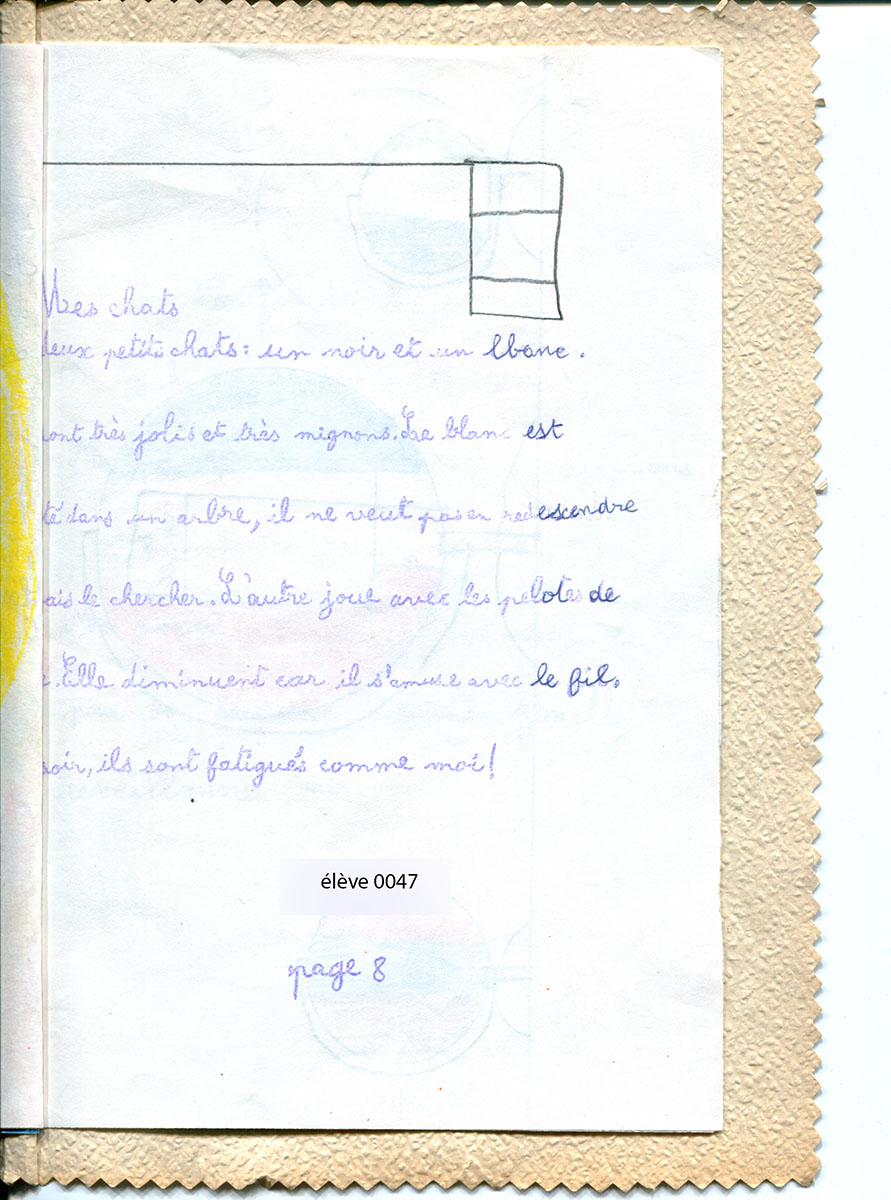 Mes chats
deux petits chats: un noir et un lbanc.
sont très jolis et très mignons. Le blanc est
té dans un arbre, il ne veut pas en redescendre
ais le chercher. L'autre joue avec les pelotes de
. Elle diminuent car il s'amuse avec le fil.
soir, ils sont fatigués comme moi!
élève 0047
page 8